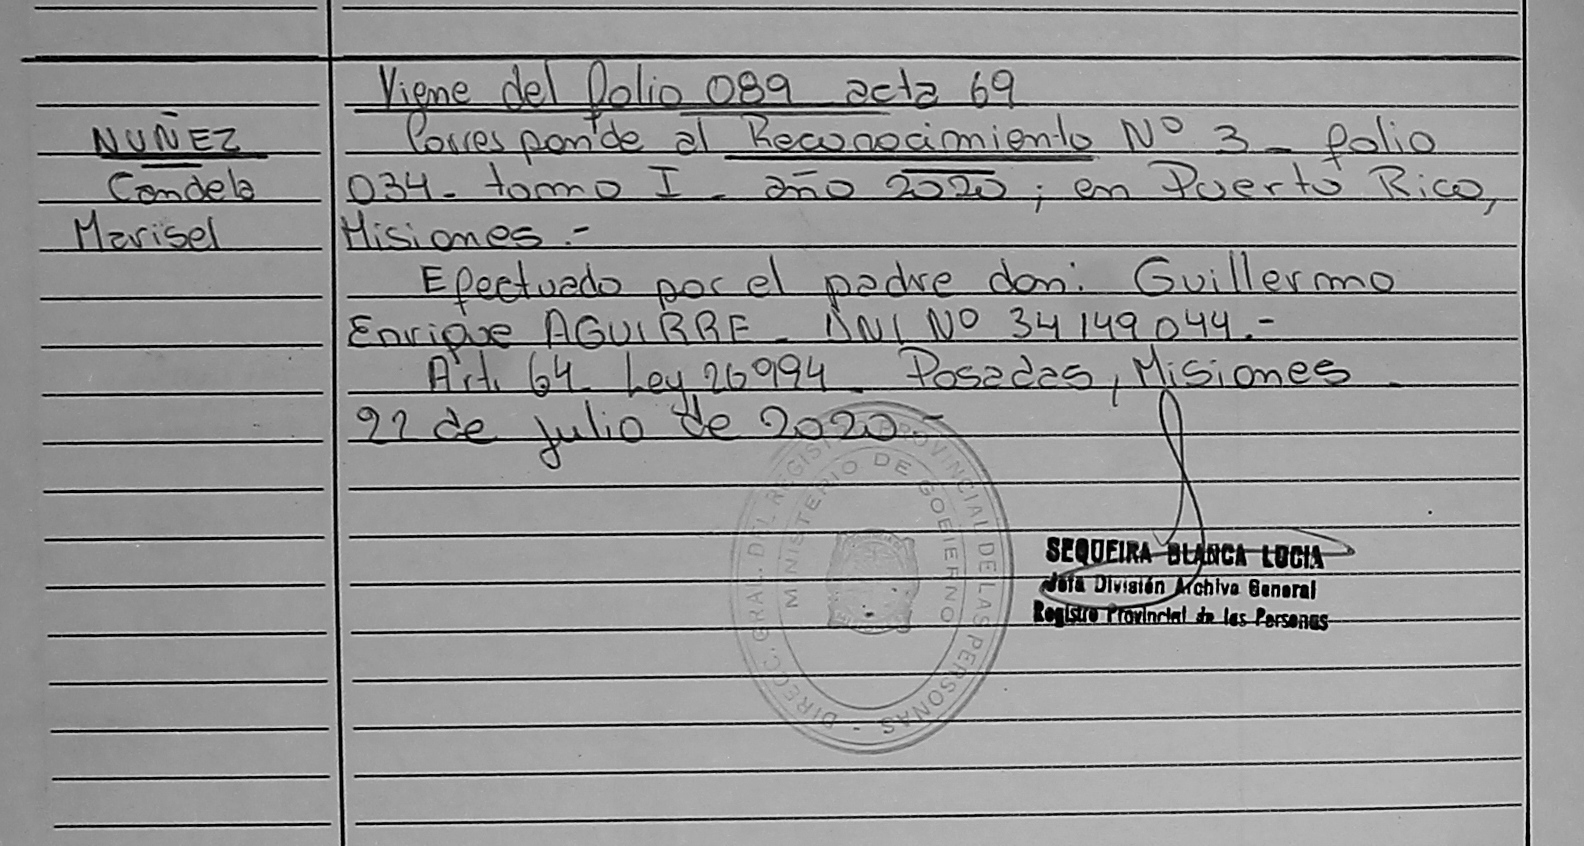 Viene del folio 089 acta 69
NUÑEZ
Candela
Marisel
Corresponde al Reconocimiento Nº 3 - folio
034 - tomo I - año 2020; en Puerto Rico,
Misiones.-
Efectuado por el padre don: Guillermo
Enrique AGUIRRE - DNI Nº 34149044.-
Art. 64 - Ley 26994 - Posadas, Misiones -
22 de julio de 2020 -
DIRECC. GRAL. DEL REGISTRO PROVINCIAL DE LAS PERSONAS -
MINISTERIO DE GOBIERNO
SEQUEIRA BLANCA LUCIA
Jefa División Archivo General
Registro Provincial de las Personas